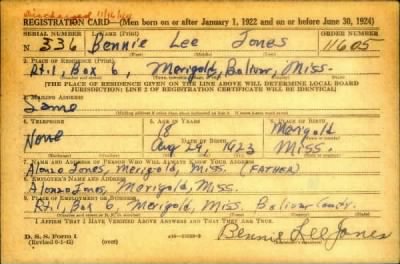 Discharged 11/16/45
REGISTRATION CARD—(Men born on or after January 1, 1922 and on or before June 30, 1924)
SERIAL NUMBER 1. NAME (Print) ORDER NUMBER
N 336 Bennie Lee Jones 11605
(First) (Middle) (Last)
2. PLACE OF RESIDENCE (Print)
Rt. 1, Box 6, Merigold, Bolivar, Miss.
[THE PLACE OF RESIDENCE GIVEN ON THE LINE ABOVE WILL DETERMINE LOCAL BOARD
JURISDICTION; LINE 2 OF REGISTRATION CERTIFICATE WILL BE IDENTICAL]
3. MAILING ADDRESS
Same
4. TELEPHONE 5. AGE IN YEARS 6. PLACE OF BIRTH
None 18 Merigold
DATE OF BIRTH
Aug 29, 1923 Miss.
7. NAME AND ADDRESS OF PERSON WHO WILL ALWAYS KNOW YOUR ADDRESS
Alonzo Jones, Merigold, Miss. (FATHER)
8. EMPLOYER'S NAME AND ADDRESS
Alonzo Jones, Merigold, Miss.
9. PLACE OF EMPLOYMENT OR BUSINESS
Rt. 1, Box 6, Merigold, Miss. Bolivar County.
I AFFIRM THAT I HAVE VERIFIED ABOVE ANSWERS AND THAT THEY ARE TRUE.
D. S. S. Form 1
(Revised 6-1-42) (over) Bennie Lee Jones